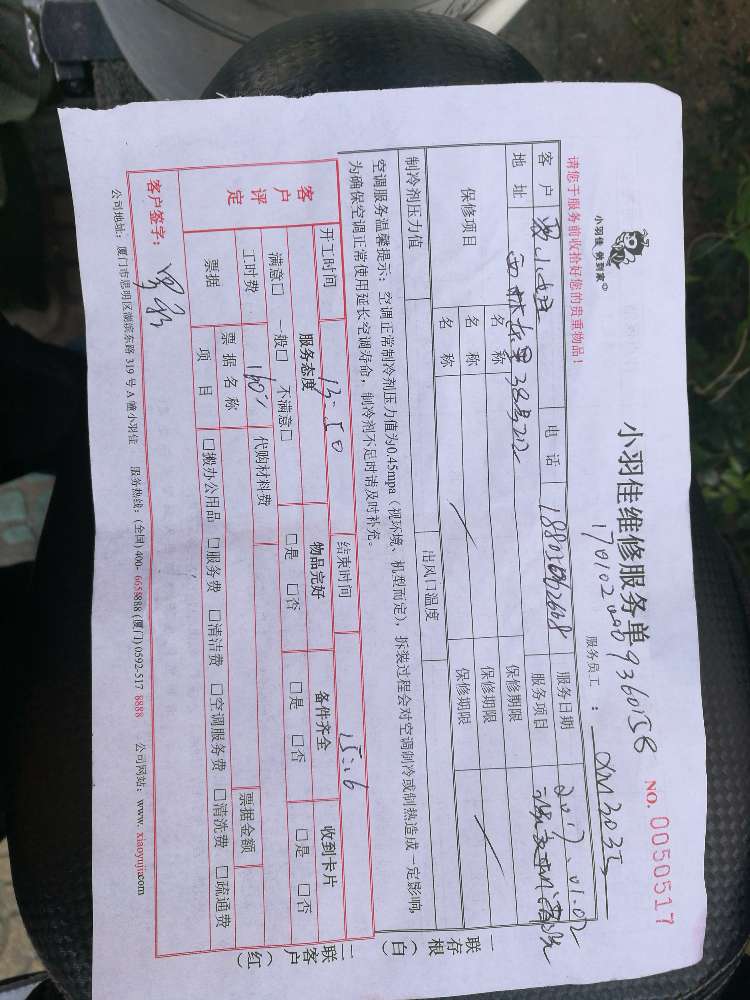 小羽佳 做到家
小羽佳维修服务单
NO. 0050517
服务员工：XM3035
请您于服务前收拾好您的贵重物品！
客户 电话 服务日期 2017.01.02
地址 服务项目
保修项目 名称 保修期限
名称 保修期限
名称 保修期限
制冷剂压力值 出风口温度
空调服务温馨提示：空调正常制冷剂压力值为0.45mpa（视环境、机型而定），拆装过程会对空调制冷或制热造成一定影响，
为确保空调正常使用延长空调寿命，制冷剂不足时请及时补充。
一联存根（白）
开工时间 13:50 结束时间 15:16
客户评定 服务态度 物品完好 备件齐全 收到卡片
满意□ 一般□ 不满意□ □是 □否 □是 □否 □是 □否
工时费 160 代购材料费
票据 票据名称 票据金额
项目 □搬办公用品 □服务费 □清洁费 □空调服务费 □清洗费 □疏通费
客户签字：
二联客户（红）
公司地址：厦门市思明区湖滨东路 319 号 A 幢小羽佳 服务热线：(全国) 400-6658888 (厦门) 0592-517 8888 公司网站：www.xiaoyujia.com